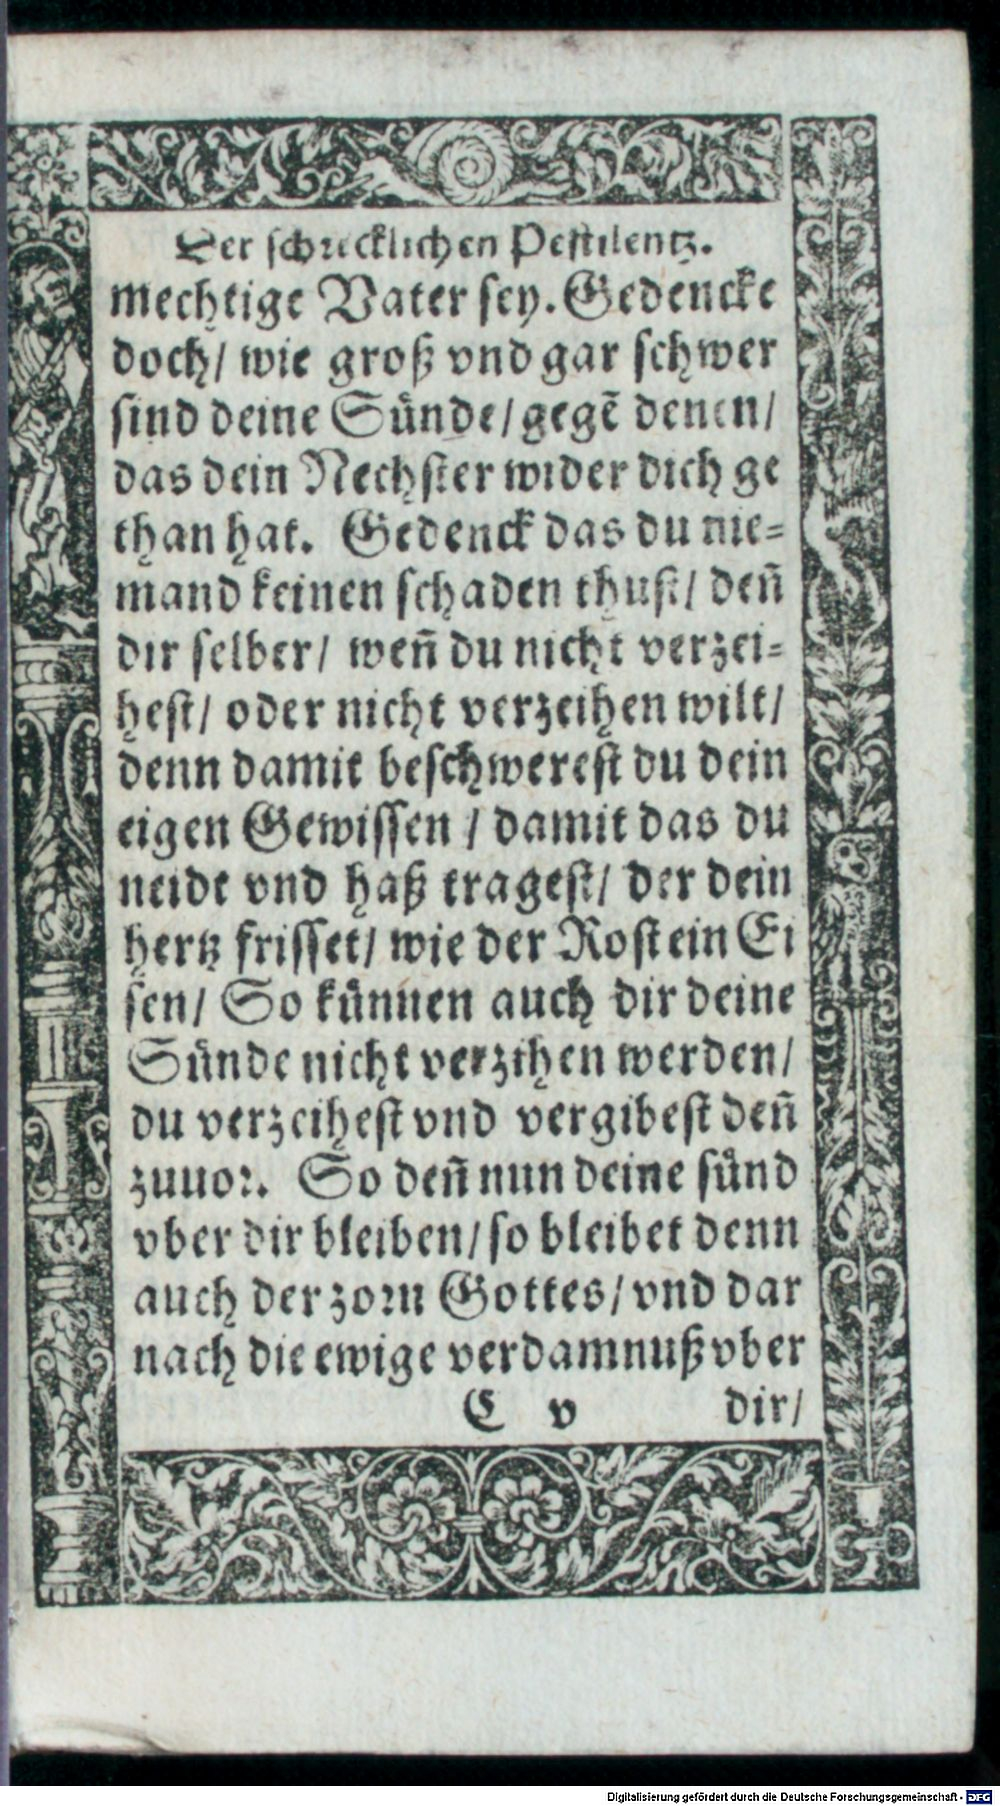 Der schrecklichen Pestilentz.
mechtige Vater sey. Gedencke
doch/ wie groß vnd gar schwer
sind deine Sünde/ gegẽ denen/
das dein Nechster wider dich ge
than hat. Gedenck das du nie=
mand keinen schaden thust/ deñ
dir selber/ weñ du nicht verzei=
hest/ oder nicht verzeihen wilt/
denn damit beschwerest du dein
eigen Gewissen / damit das du
neidt vnd haß tragest/ der dein
hertz frisset/ wie der Rost ein Ei
sen/ So künnen auch dir deine
Sünde nicht verzihen werden/
du verzeihest vnd vergibest deñ
zuuor. So deñ nun deine sünd
vber dir bleiben/ so bleibet denn
auch der zorn Gottes/ vnd dar
nach die ewige verdamnuß vber
C v dir/
Digitalisierung gefördert durch die Deutsche Forschungsgemeinschaft - DFG